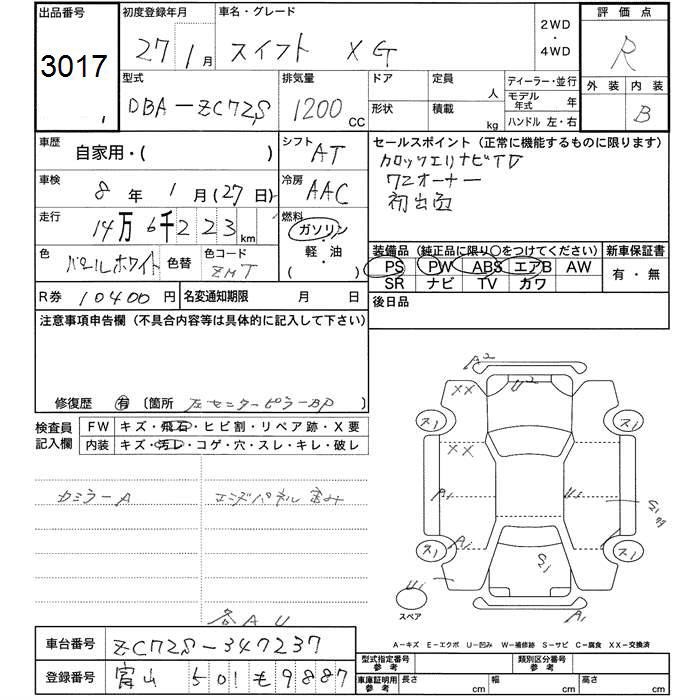 出品番号
3017
初度登録年月
27 1月
車名・グレード
スイフト XG
2WD
・
4WD
評価点
R
型式
DBA-ZC72S
排気量
1200 CC
ドア
形状
定員 人
積載 kg
ディーラー・並行
モデル年式 年
ハンドル 左・右
外装 内装
B
車歴
自家用・( )
シフト
AT
セールスポイント（正常に機能するものに限ります）
カロッツェリナビTV
ワンオーナー
初出品
車検
8年 1月(27日)
冷房
AAC
走行
14万6千223km
燃料
ガソリン
・
軽・油
( )
色
パールホワイト
色替
色コード
ZHT
装備品（純正品に限り○をつけてください）
PS PW ABS エアB AW
SR ナビ TV カワ
新車保証書
有・無
R券 10400円
名変通知期限 月 日
後日品
注意事項申告欄（不具合内容等は具体的に記入して下さい）
修復歴 有 〔箇所 左センターピラーBP 〕
検査員
記入欄
FW キズ・飛石・ヒビ割・リペア跡・X要
内装 キズ・汚レ・コゲ・穴・スレ・キレ・破レ
カミラーA
エンドパネル歪み
各AU
A2
U2
XX XX
ス1 ス1
XX
A1 U1
A1
S1
ス1 ス1
U1
スペア
A1
A-キズ E-エクボ U-凹み W-補修跡 S-サビ C-腐食 XX-交換済
車台番号
ZC72S-347237
登録番号
富山 501 も 9887
型式指定番号
参考
類別区分番号
参考
車庫証明用
参考
長さ cm
幅 cm
高さ cm